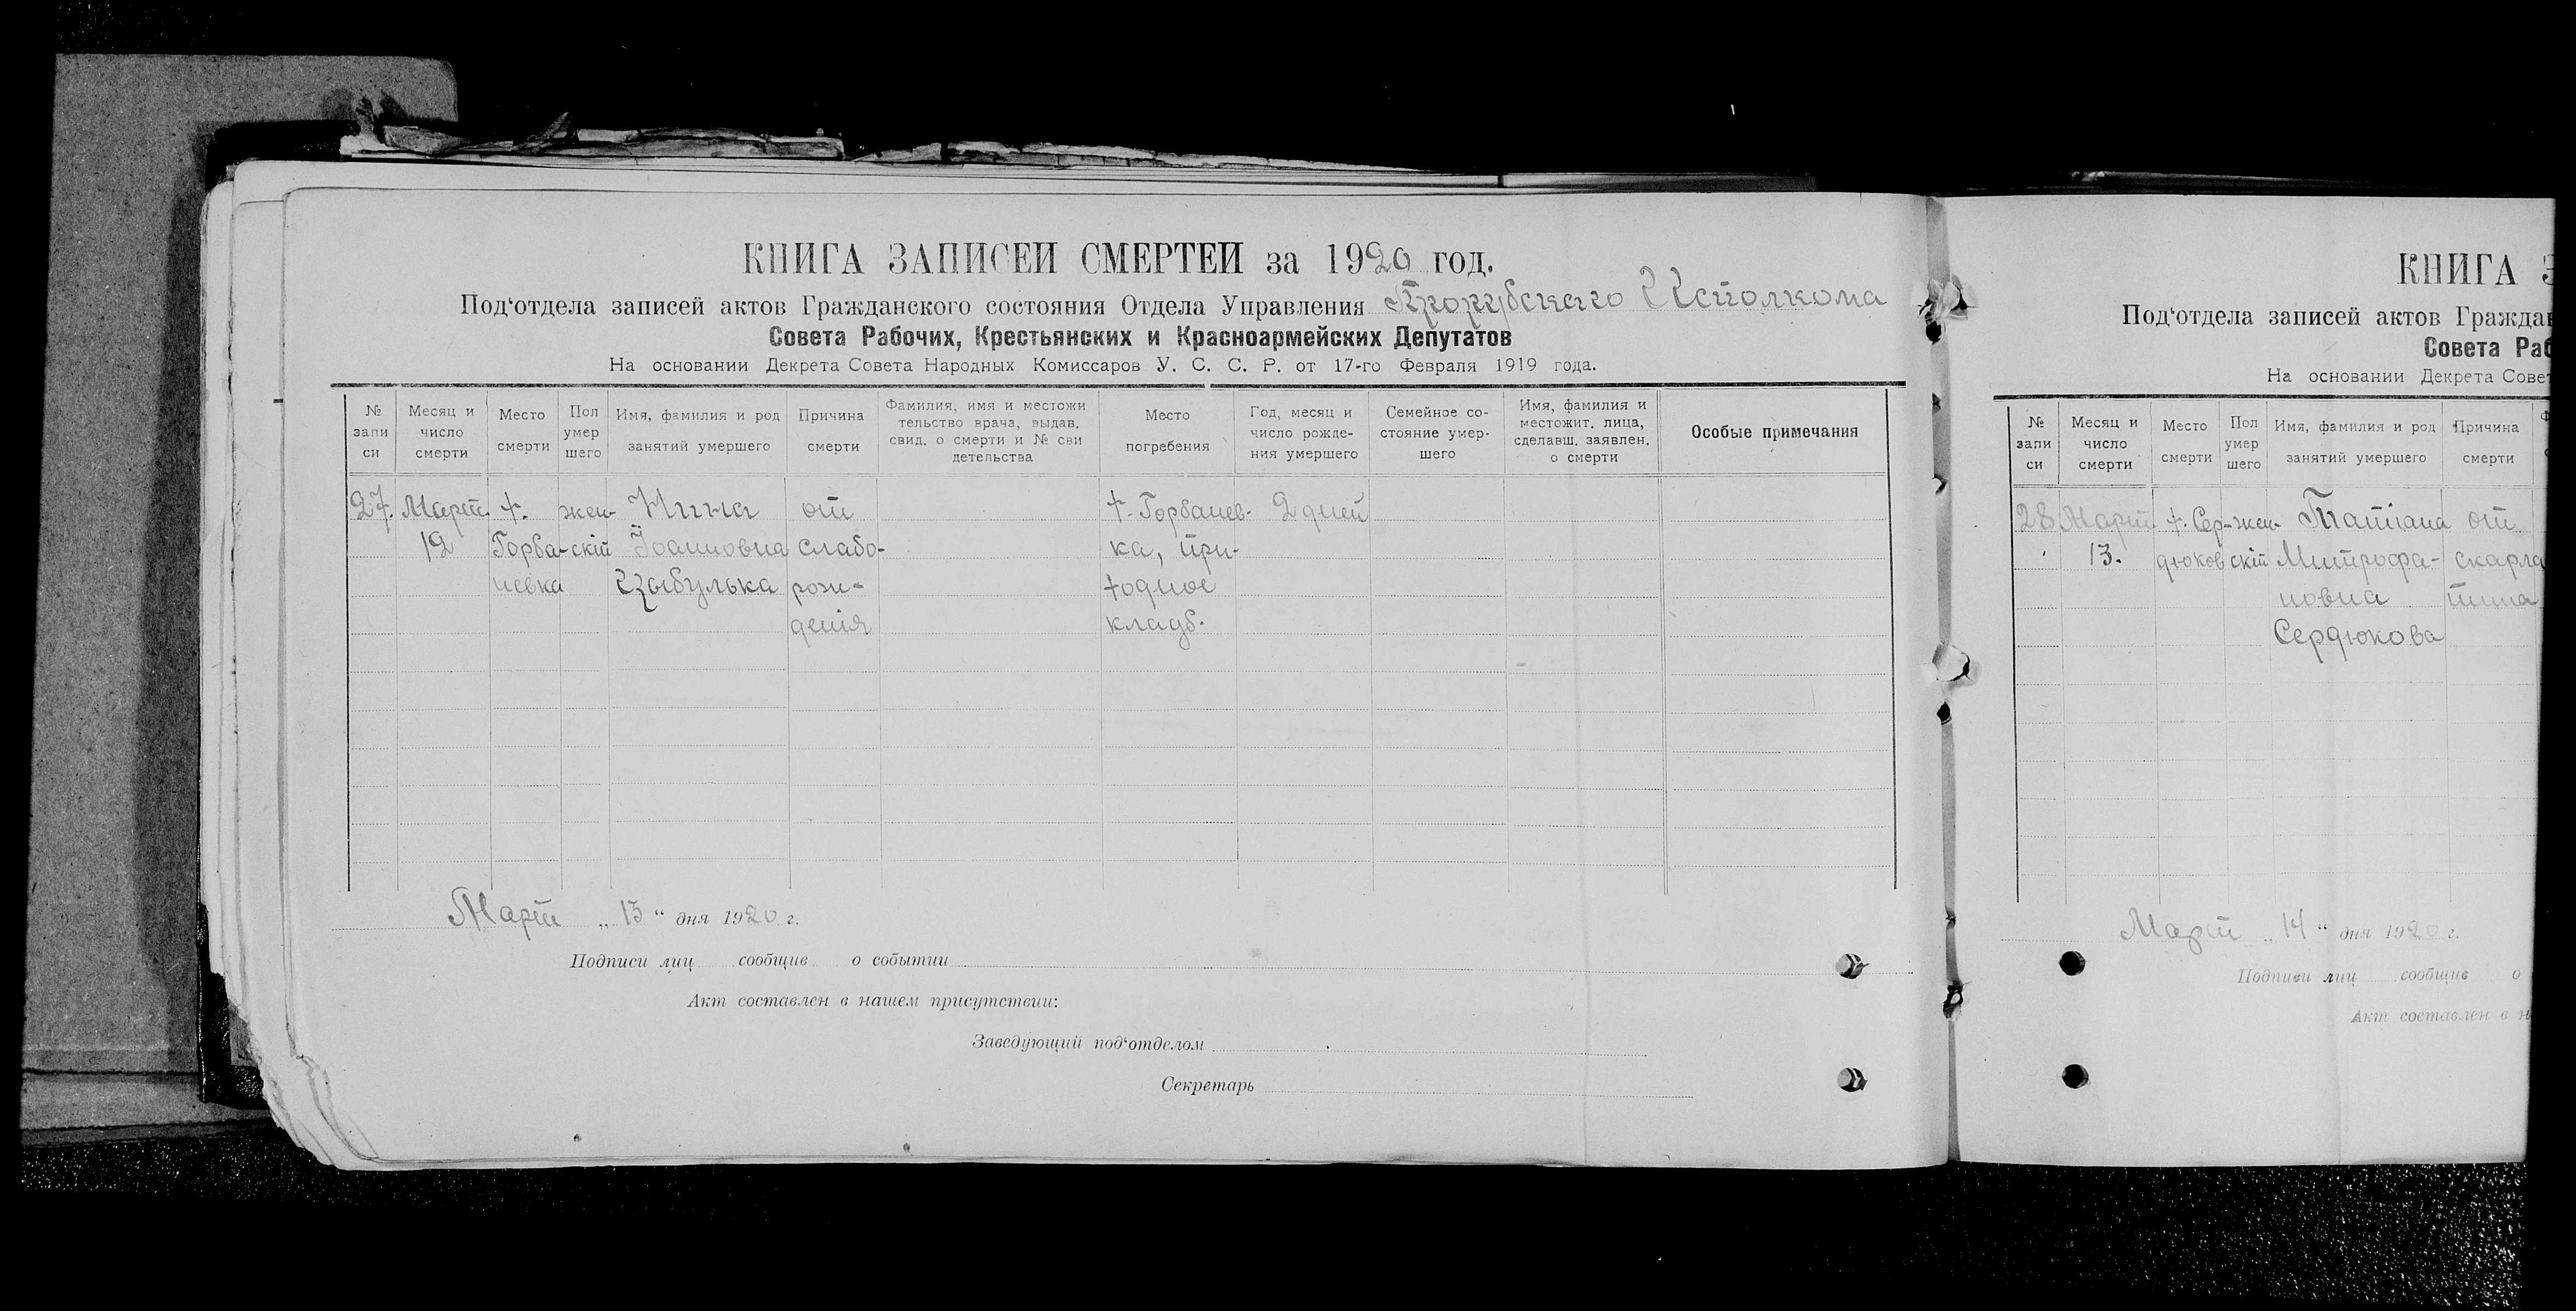 КНИГА ЗАПИСЕЙ СМЕРТЕЙ за 1920 год.
Под‘отдела записей актов Гражданского состояния Отдела Управления Исполкома
Совета Рабочих, Крестьянских и Красноармейских Депутатов
На основании Декрета Совета Народных Комиссаров У. С. С. Р. от 17-го Февраля 1919 года.
№ запи си
Месяц и число смерти
Место смерти
Пол умер шего
Имя, фамилия и род занятий умершего
Причина смерти
Фамилия, имя и местожи тельство врача, выдав. свид. о смерти и № сви детельства
Место погребения
Год, месяц и число рожде- ния умершего
Семейное со- стояние умер- шего
Имя, фамилия и местожит. лица, сделавш. заявлен. о смерти
Особые примечания
27. Март. х. жен- Нина от х. Горбанев- 2 дней
12 Горба- скій Іоанновна слабо- ка, при-
невка Цыбулька рож- ходное
денія кладб.
Март „ 13 “ дня 1920 г.
Подписи лиц сообщив о событии
Акт составлен в нашем присутствии:
Заведующий под‘отделом
Секретарь
КНИГА З
Под‘отдела записей актов Граждан
Совета Раб
На основании Декрета Совет
№ запи си
Месяц и число смерти
Место смерти
Пол умер шего
Имя, фамилия и род занятий умершего
Причина смерти
28 Март х. Сер- жен- Татіана от
13. дюков скій Митрофа- скарла
новна тина
Сердюкова
Март „ 14 “ дня 1920 г.
Подписи лиц сообщив о
Акт составлен в н